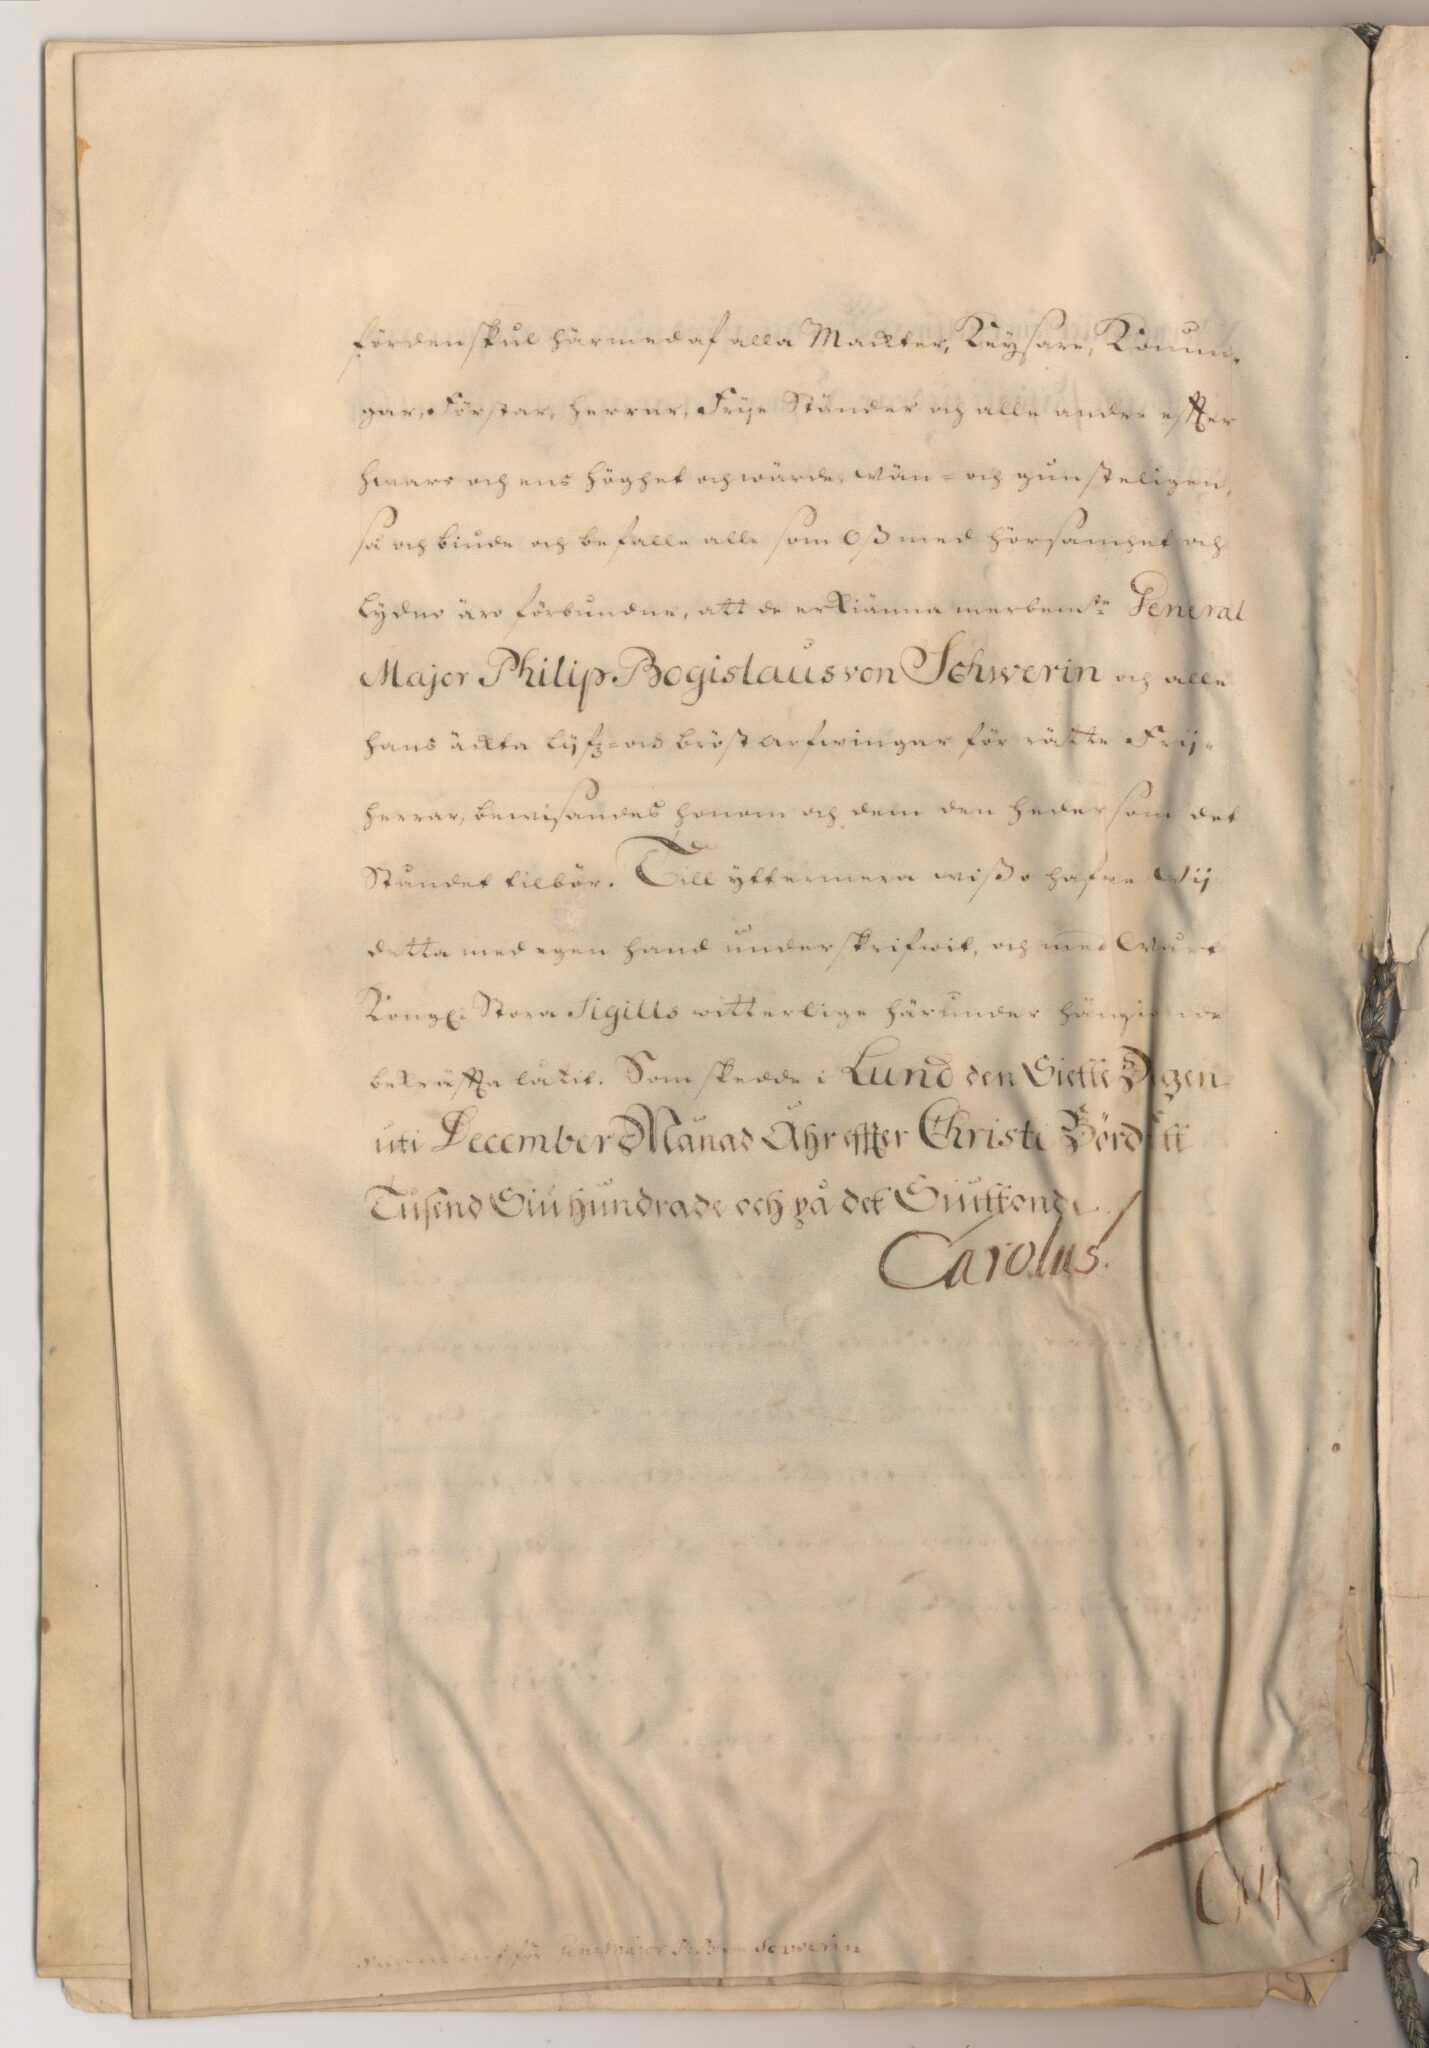 fördenskul härmed af alla Mackter, Keysare, Konun-
gar, Förstar, herrar, Frije Ständer och alle andre effter
hwars och ens höghet och wärde, wän- och gunsteligen,
så och biude och befalle alle som Oß med hörsamhet och
lydno äro förbundne, att de erkiänna merbemte General
Major Philip Bogislaus von Schwerin och alle
hans äckta lijfz- och bröst arfwingar för rätte Frij-
herrar, bewisandes honom och dem den heder som det
Ståndet tilbör. Till yttermera wißo hafwe Wij
detta med egen hand underskrifwit, och med Wårt
Kongl: Stora Sigills witterlige härunder hängiande
bekräffta låtit. Som skedde i Lund den Siette Dagen
uti December Månad Åhr effter Christi Börd Ett
Tusend Siuhundrade och på det Siuttonde.
Carolus.
för Gen: Major P: B: von Schwerin